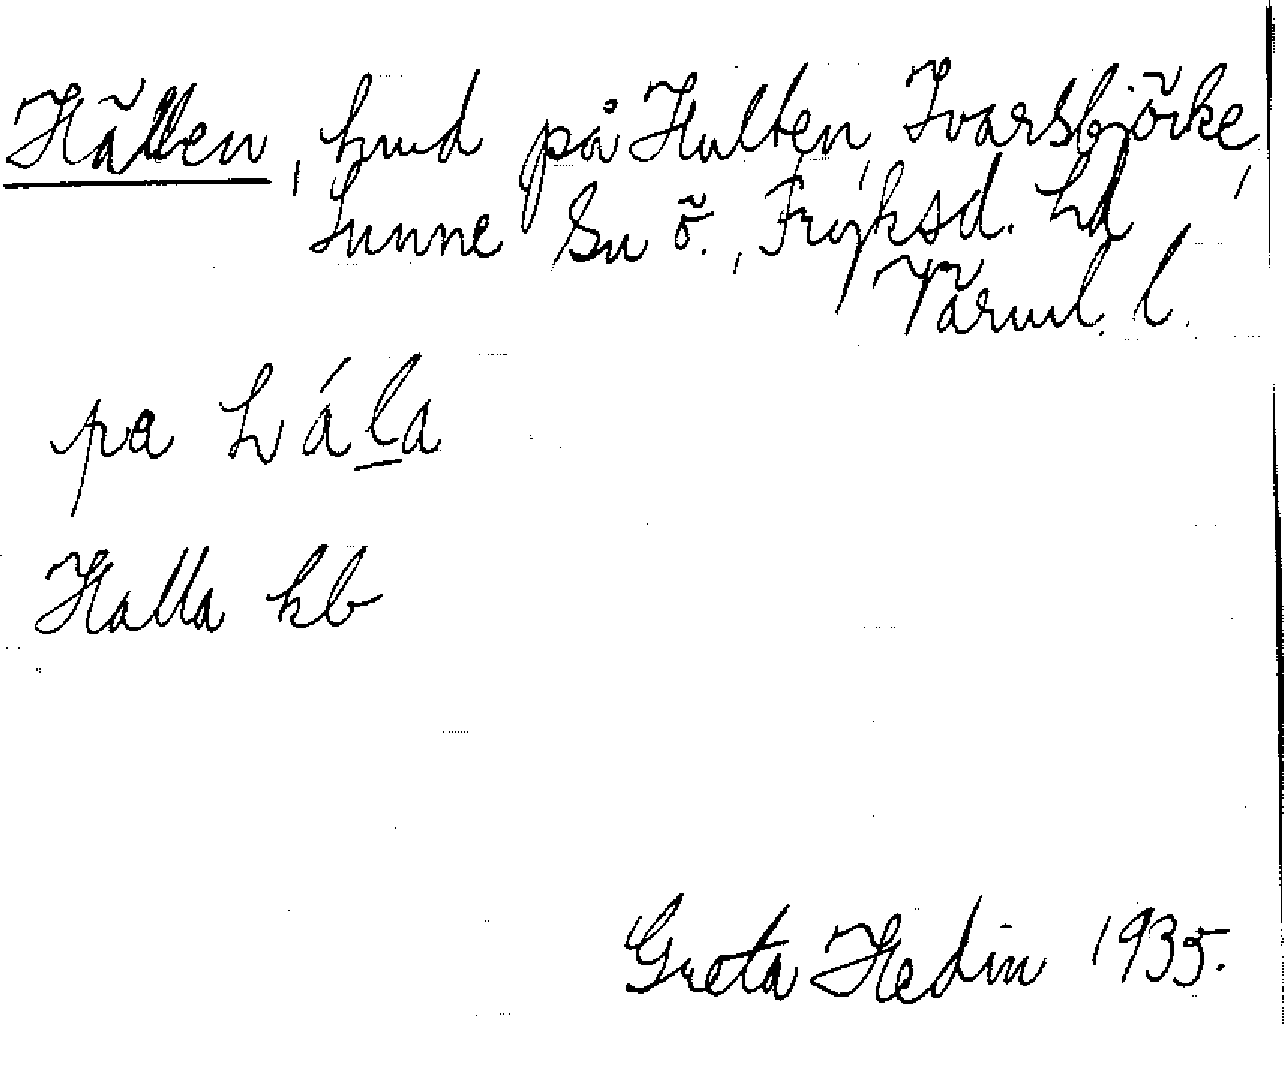 Hällen, hmd på Hulten, Ivarsbjörke,
Sunne Sn ö., Fryksd. hd,
Värml. l.
pa hála
Halla kb
Greta Hedin 1935.